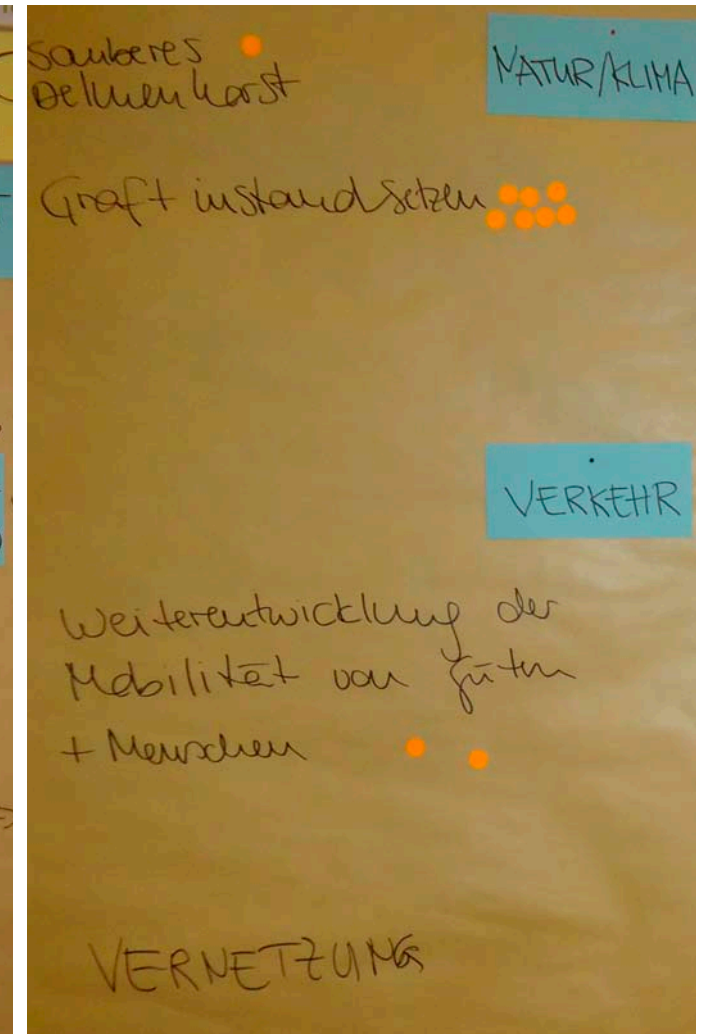 Sauberes
Delmenhorst
NATUR/KLIMA
Graft instandsetzen
VERKEHR
Weiterentwicklung der
Mobilität von Gütern
+ Menschen
VERNETZUNG